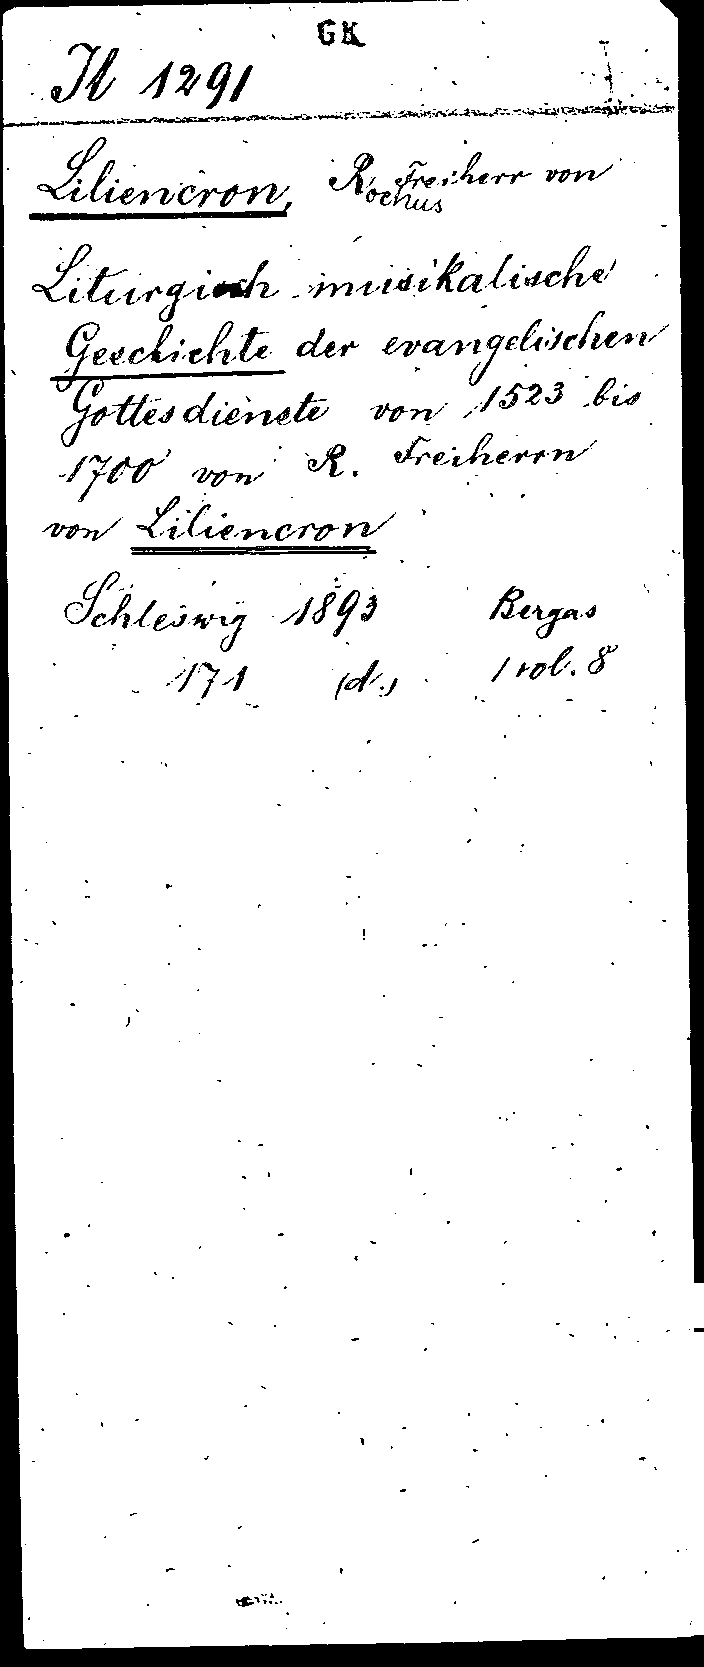 GK
Il 1291
Liliencron, Rochus Freiherr von
Liturgisch musikalische
Geschichte der evangelischen
Gottesdienste von 1523 bis
1700 von R. Freiherrn
von Liliencron
Schleswig 1893 Bergas
171 (d.) 1 vol. 8